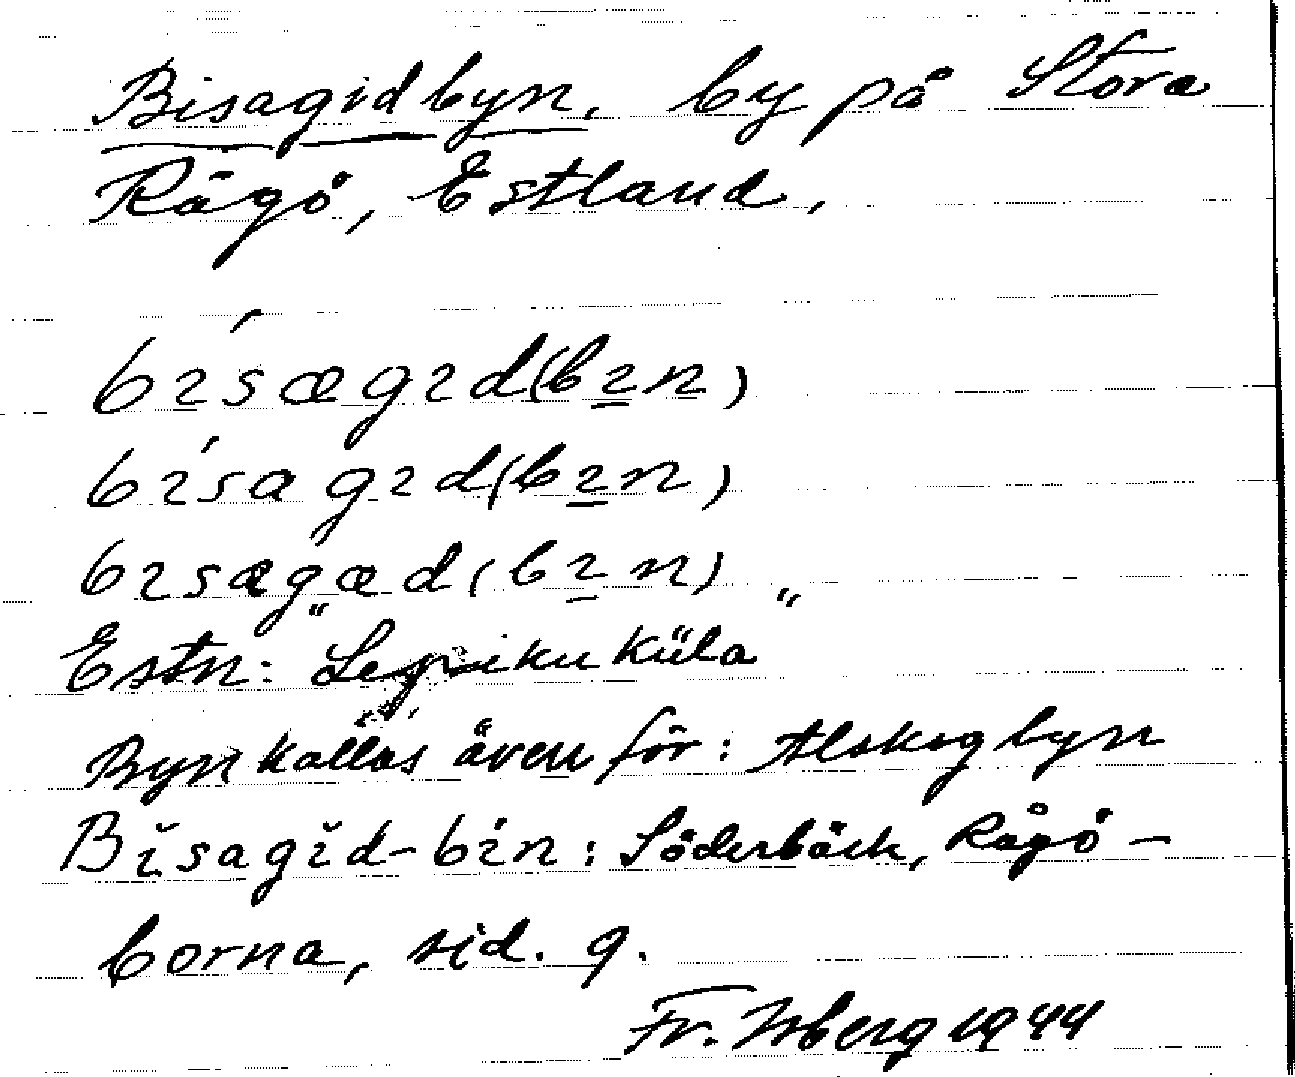 Bisagidbyn, by på Stora
Rågö, Estland.
bɩ́sægɩd(bɩ̲n)
bɩ́sagɩd(bɩ̲n)
bɩsægæd(bɩ̲n)
Estn: "Lepiku küla"
Byn kallas även för: Alskogbyn
Bĭsagĭd-bin: Söderbäck, Rågö-
borna, sid. 9.
Fr. Isberg 1944